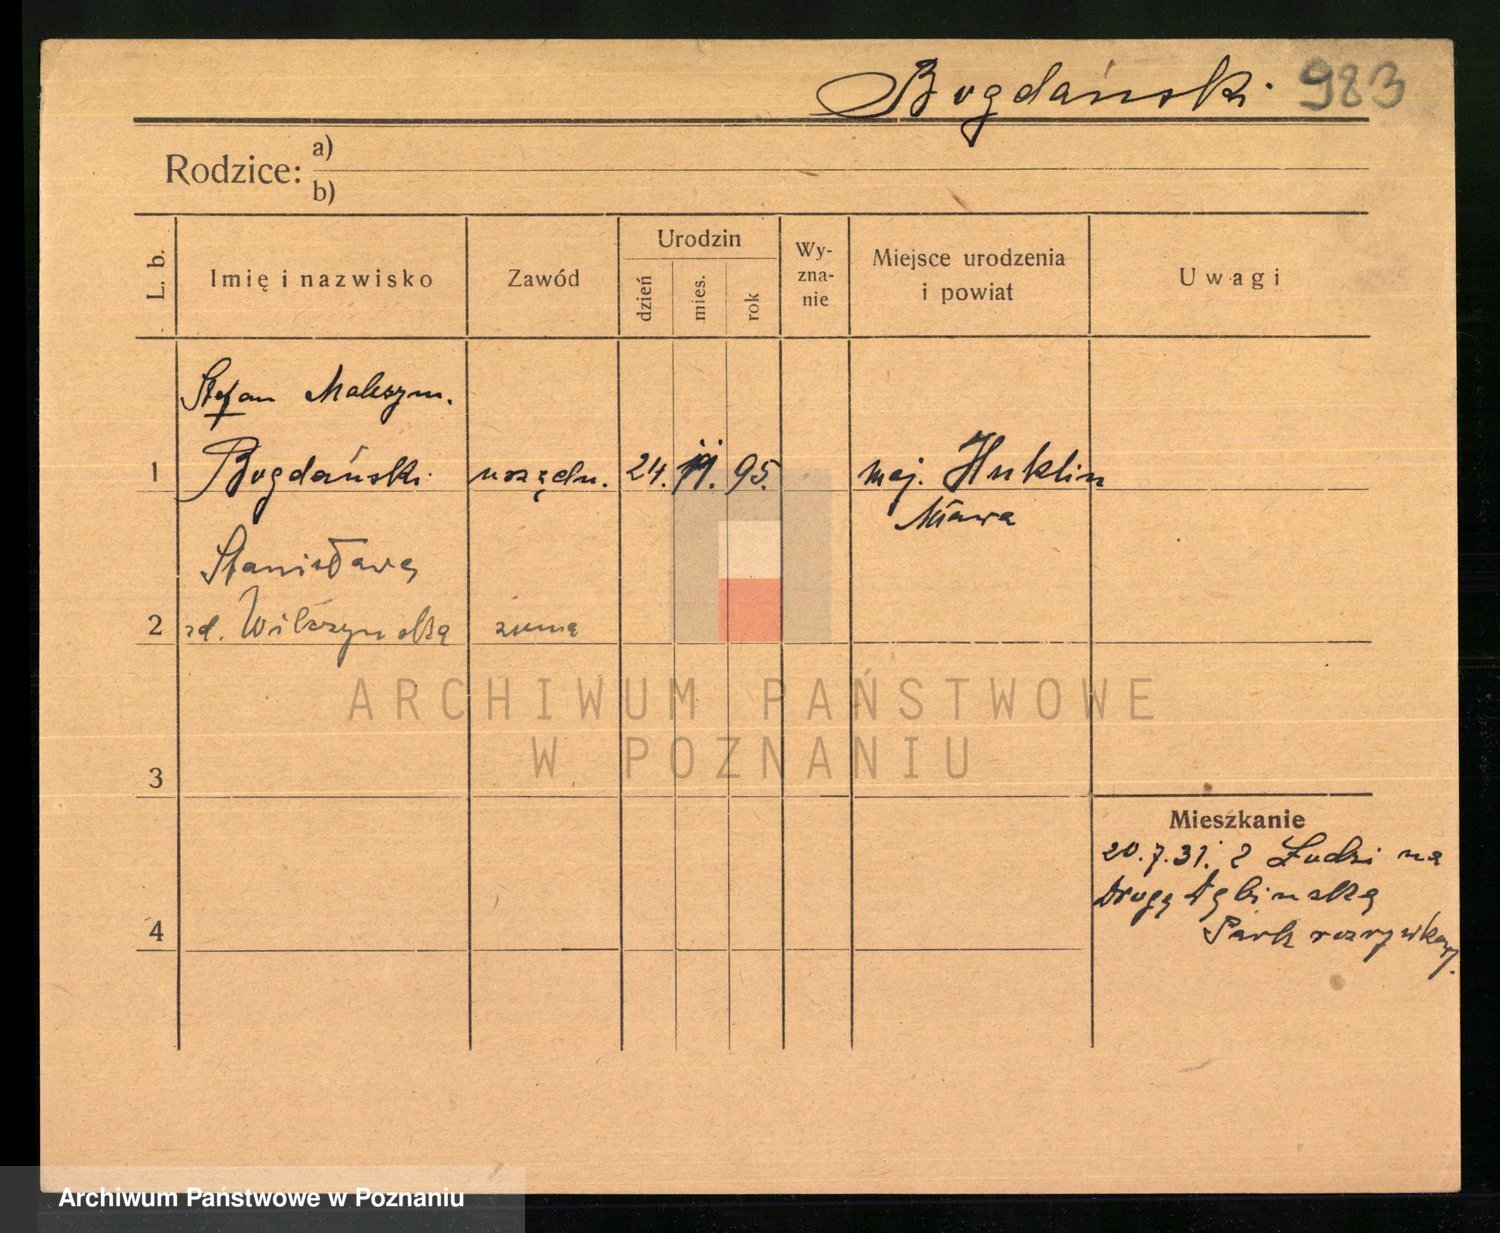 Bogdański. 983
Rodzice: a)
b)
L. b.
Imię i nazwisko
Zawód
Urodzin
dzień
mies.
rok
Wy-
zna-
nie
Miejsce urodzenia
i powiat
Uwagi
Stefan Maksym.
1 Bogdański urzędn. 24. 95. maj.
Mława
Stanisława
2 zd. żona
ARCHIWUM PAŃSTWOWE
W POZNANIU
3
Mieszkanie
20.7.31. z Łodzi na
Drogę Dębińską
4
Park rozrywkowy.
Archiwum Państwowe w Poznaniu